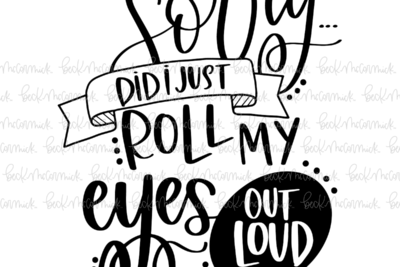 Sorry...
DID I JUST
ROLL MY
eyes
OUT
LOUD